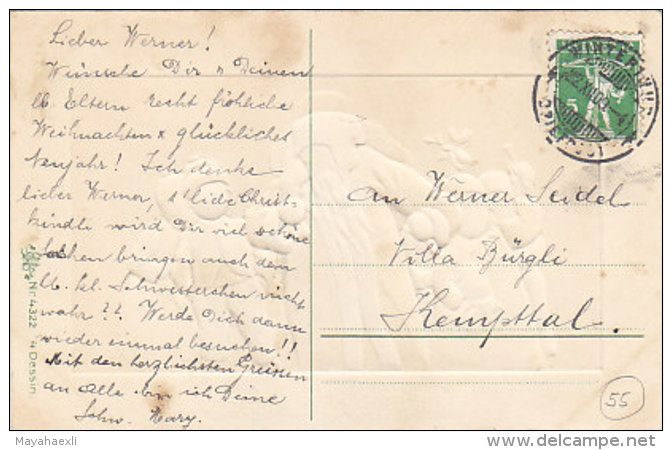 Lieber Werner!
Wünsche Dir & Deinen
lb. Eltern recht fröhliche
Weihnachten & glückliches
Neujahr! Ich denke
lieber Werner, s'liebe Christ-
kindle wird Dir viel schöne
Sachen bringen auch dem
lb. kl. Schwesterchen nicht
wahr?! Werde Dich dann
wieder einmal besuchen!!
Mit den herzlichsten Grüssen
an alle bin ich Deine
Schw. Mary.
WINTERTHUR
5
an Werner Seidel
Villa Bürgli
Kempttal.
Nr. 4322 4 Dessin
55
Mayahaexli
www.delcampe.net